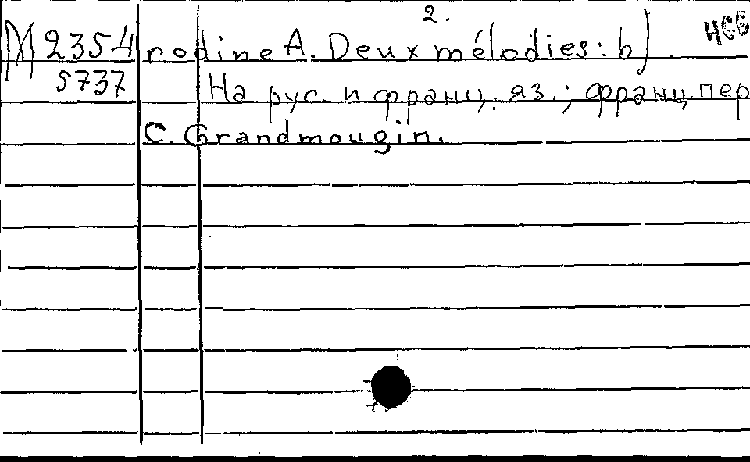 2.
М 2354 rodine A. Deux mélodies: b].
5737 На рус. и франц. яз.; франц. пер
C. Grandmougin.